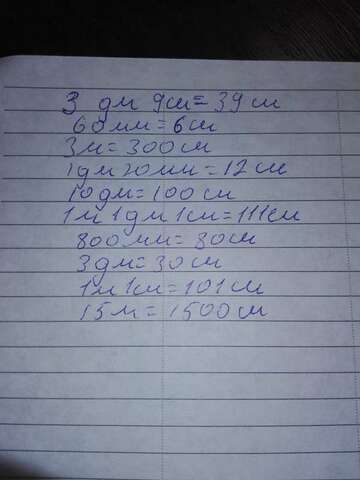 3 дм 9см=39см
60мм=6см
3м=300см
1дм20мм=12см
10дм=100см
1м1дм1см=111см
800мм=80см
3дм=30см
1м1см=101см
15м=1500см